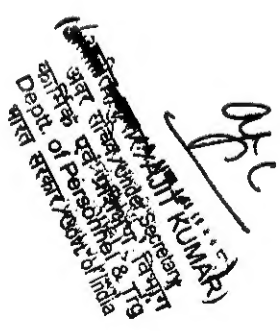 AJIT KUMAR)
अवर सचिव/Under Secretary
कार्मिक एवं
Deptt. of Personnel & Trg
भारत सरकार/Govt. of India